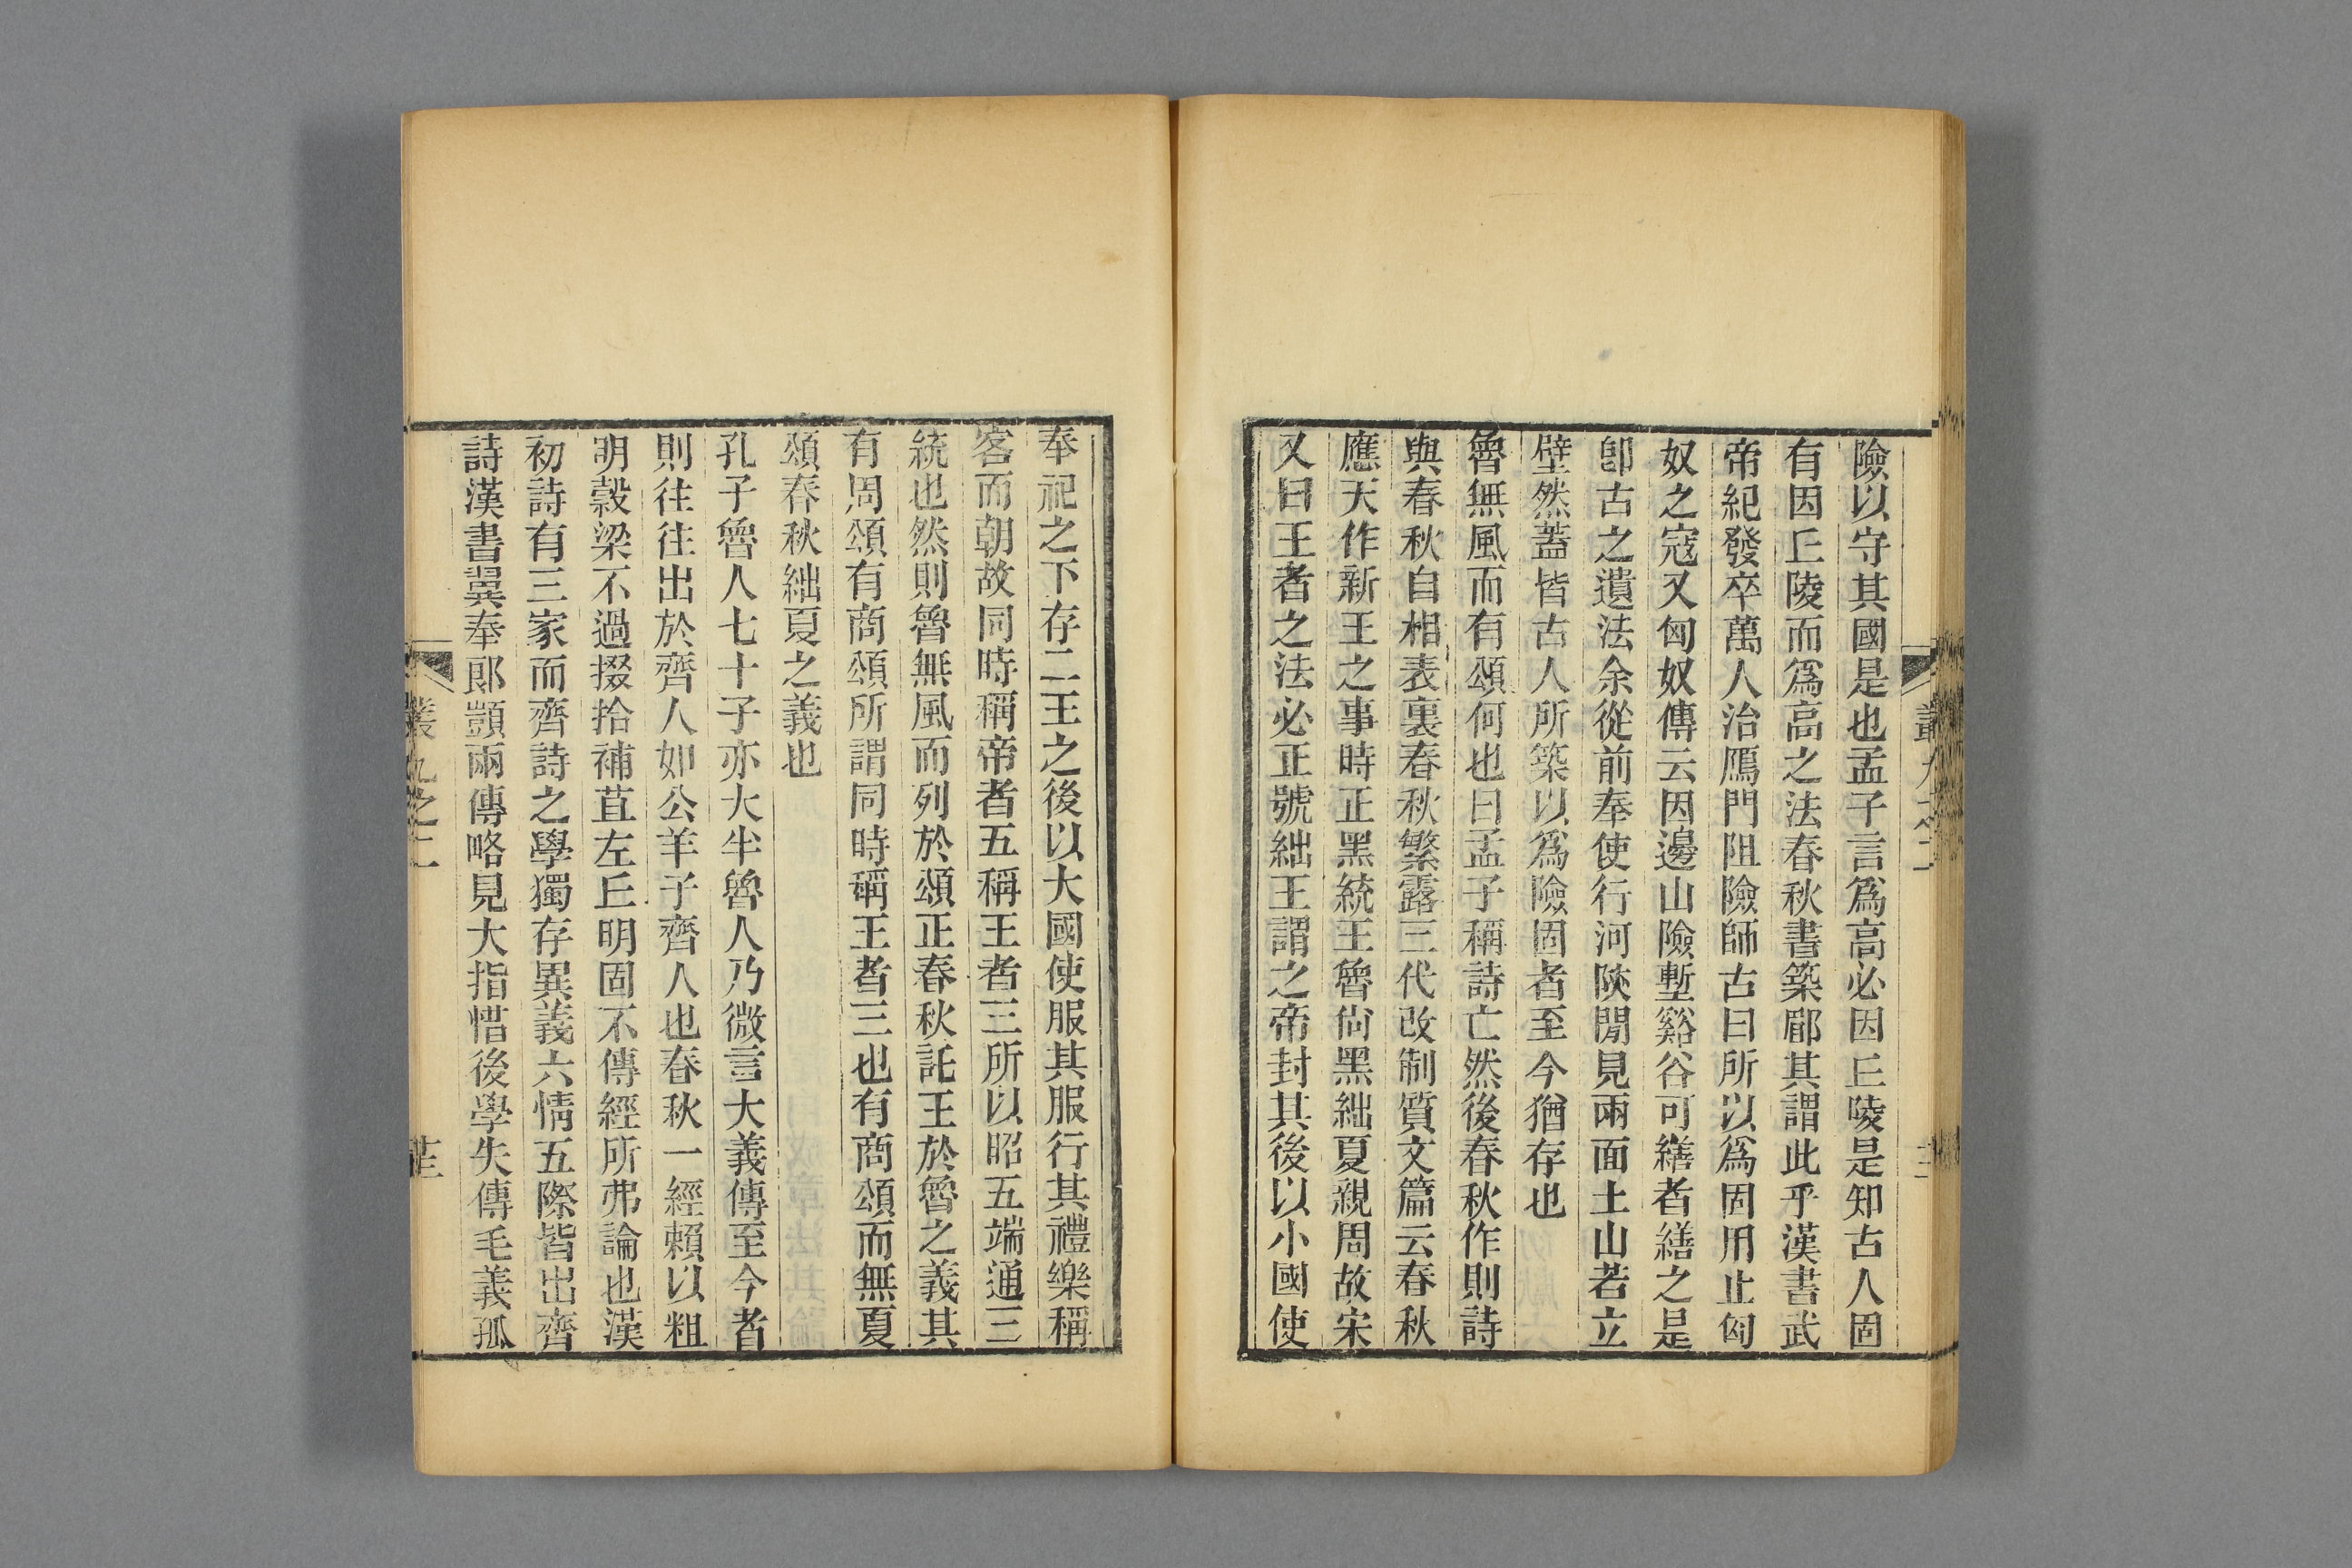 險以守其國是也孟子言爲高必因丘陵是知古人固
有因丘陵而爲高之法春秋書築郿其謂此乎漢書武
帝紀發卒萬人治鴈門阻險師古曰所以爲固用止匈
奴之寇又匈奴傳云因邊山險塹谿谷可繕者繕之是
卽古之遺法余從前奉使行河陝閒見兩面土山若立
壁然蓋皆古人所築以爲險固者至今猶存也
魯無風而有頌何也曰孟子稱詩亡然後春秋作則詩
與春秋自相表裏春秋繁露三代改制質文篇云春秋
應天作新王之事時正黑統王魯尙黑絀夏親周故宋
又曰王者之法必正號絀王謂之帝封其後以小國使
奉祀之下存二王之後以大國使服其服行其禮樂稱
客而朝故同時稱帝者五稱王者三所以昭五端通三
統也然則魯無風而列於頌正春秋託王於魯之義其
有周頌有商頌所謂同時稱王者三也有商頌而無夏
頌春秋絀夏之義也
孔子魯人七十子亦大半魯人乃微言大義傳至今者
則往往出於齊人如公羊子齊人也春秋一經賴以粗
明穀梁不過掇拾補苴左丘明固不傳經所弗論也漢
初詩有三家而齊詩之學獨存異義六情五際皆出齊
詩漢書翼奉郞顗兩傳略見大指惜後學失傳毛義孤
叢九之二